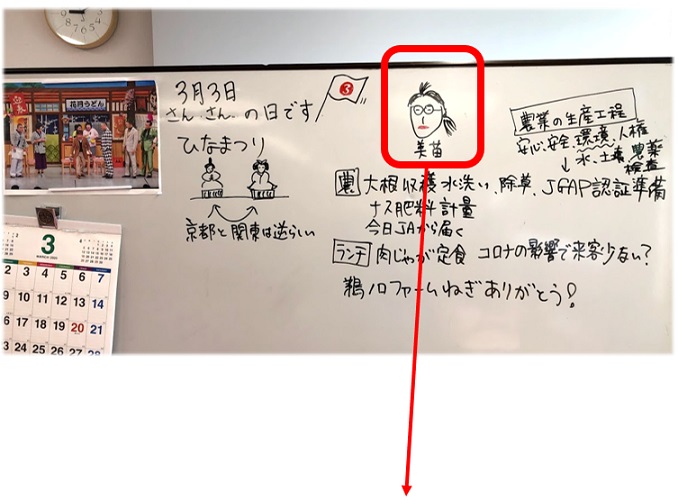 花月うどん
3月3日
さん、さん、の日です
③
ひなまつり
京都と関東は逆らしい
美苗
農業の生産工程
安心、安全、環境、人権
↓
水、土壌、農薬
検査
農 大根収穫 水洗い、除草、JGAP認証準備
ナス肥料計量
今日JAから届く
ランチ 肉じゃが定食 コロナの影響で来客少ない?
鵜ノロファームねぎありがとう!
3
MARCH
2 3 4 5 6 7
9 10 11 12 13 14
16 17 18 19 20 21
3 24 25 26 27 28